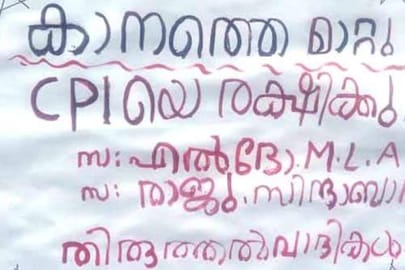 കാനത്തെ മാറ്റു
CPI യെ രക്ഷിക്കു
സ: എൽദോ. M.L.A
സ: രാജു. സിന്ദാബാ
തിരുത്തൽവാദികൾ